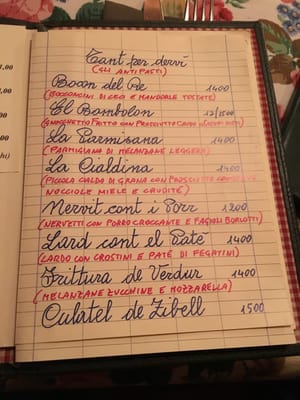 Tant per dervì
(GLI ANTIPASTI)
Bocon del Re 1400
(BOCCONCINI DI CEO E MANDORLE TOSTATE)
El Bombolon 12/1500
(GNOCCHETTO FRITTO CON PROSCIUTTO CRUDO
La Parmisana 1400
(PARMIGIANA DI MELANZANE LEGGERA)
La Cialdina 1400
(PICCOLA CIALDA DI GRANA CON PROSCIUTTO
NOCCIOLE MIELE E CRUDITÉ)
Nervit cont i Porr 1200
(NERVETTI CON PORRO CROCCANTE E FAGIOLI BORLOTTI)
Lard cont el Paté 1400
(LARDO CON CROSTINI E PATÉ DI FEGATINI)
Frittura de Verdur 1400
(MELANZANE ZUCCHINE E MOZZARELLA)
Culatel de Zibell 1500